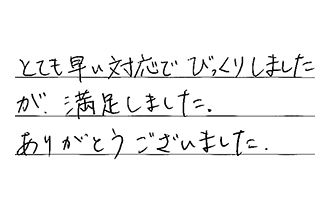 とても早い対応でびっくりしました
が、満足しました。
ありがとうございました.